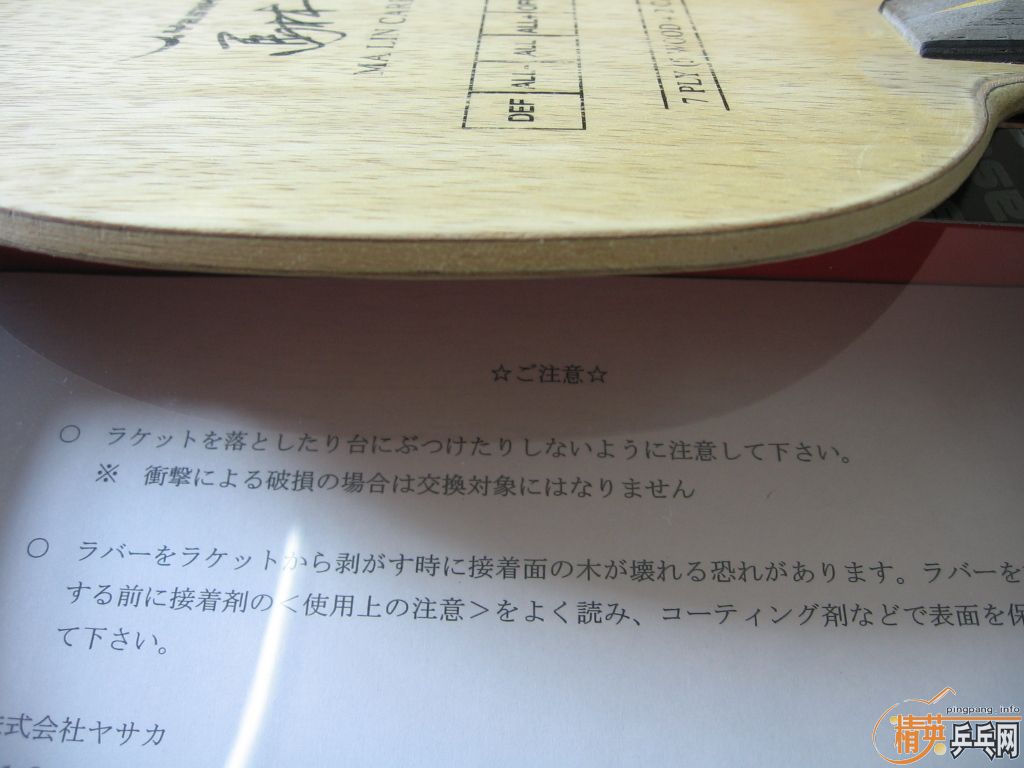 MA LIN CARB
DEF ALL- ALL ALL+ OFF
7 PLY (5 WOOD + 2 C
☆ご注意☆
○ ラケットを落としたり台にぶつけたりしないように注意して下さい。
※ 衝撃による破損の場合は交換対象にはなりません
○ ラバーをラケットから剥がす時に接着面の木が壊れる恐れがあります。ラバーを
する前に接着剤の<使用上の注意>をよく読み、コーティング剤などで表面を保
て下さい。
株式会社ヤサカ
pingpang.info
精英乒乓网